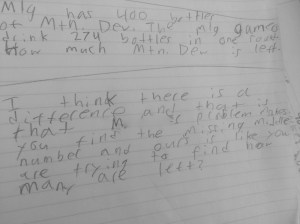 Mlg has 400 bottles
of Mtn. Dew. The mlg gamers
drink 274 bottles in one
How much Mtn. Dew is left.
I think there is a
difference and that is
that is problem
you find the missing middle
number and ours is like you
are trying to find how
many are left?